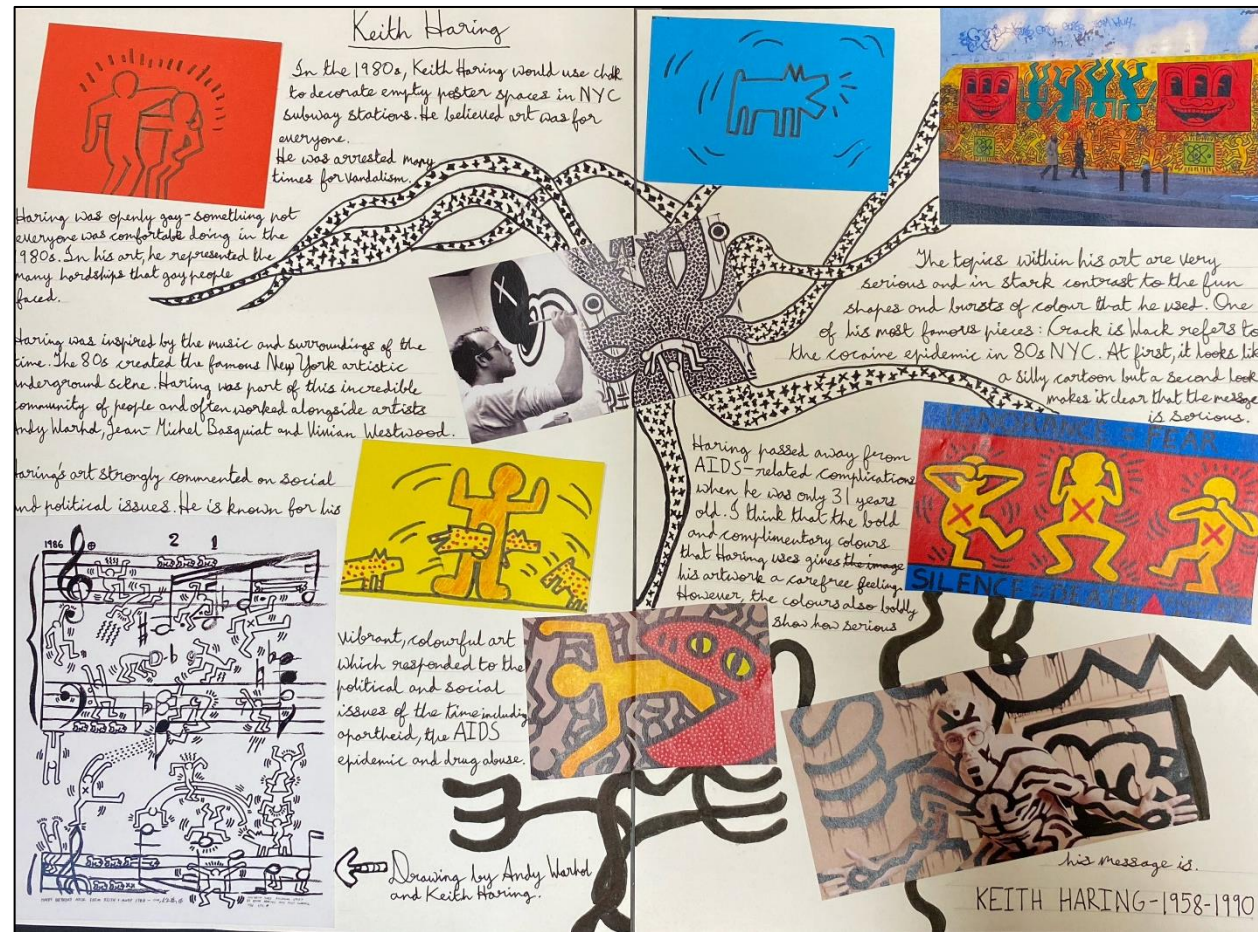 Keith Haring
In the 1980s, Keith Haring would use chalk
to decorate empty poster spaces in NYC
subway stations. He believed art was for
everyone.
He was arrested many
times for vandalism.
Haring was openly gay - something not
everyone was comfortable doing in the
1980s. In his art, he represented the
many hardships that gay people
faced.
Haring was inspired by the music and surroundings of the
time. The 80s created the famous New York artistic
underground scene. Haring was part of this incredible
community of people and often worked alongside artists
Andy Warhol, Jean-Michel Basquiat and Vivian Westwood.
Haring's art strongly commented on social
and political issues. He is known for his
vibrant, colourful art
which responded to the
political and social
issues of the time including
apartheid, the AIDS
epidemic and drug abuse.
1986 2 1
Drawing by Andy Warhol
and Keith Haring.
The topics within his art are very
serious and in stark contrast to the fun
shapes and bursts of colour that he used. One
of his most famous pieces: Crack is Wack refers to
the cocaine epidemic in 80s NYC. At first, it looks lik
a silly cartoon but a second look
makes it clear that the message
is serious.
Haring passed away from
AIDS-related complications
when he was only 31 years
old. I think that the bold
and complimentary colours
that Haring uses gives the image
his artwork a carefree feeling.
However, the colours also boldly
show how serious
his message is.
IGNORANCE = FEAR
SILENCE = DEATH
KEITH HARING - 1958-1990